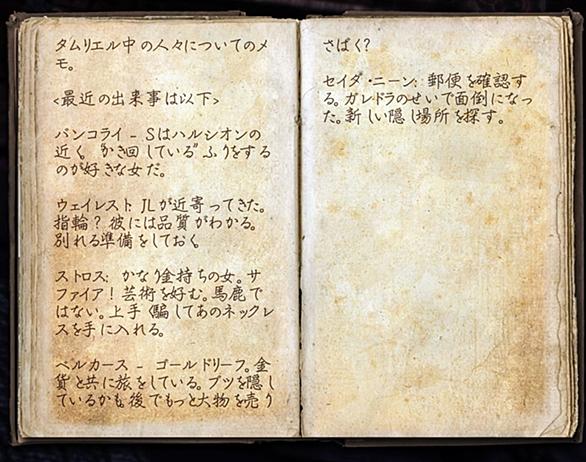 タムリエル中の人々についてのメ
モ。
<最近の出来事は以下>
バンコライ - Sはハルシオンの
近く。"かき回している"ふりをする
のが好きな女だ。
ウェイレスト JLが近寄ってきた。
指輪? 彼には品質がわかる。
別れる準備をしておく
ストロス: かなり金持ちの女。サ
ファイア! 芸術を好む。馬鹿で
はない。上手く騙してあのネックレ
スを手に入れる。
ベルカース - ゴールドリーフ。金
貨と共に旅をしている。ブツを隠し
ているかも。後でもっと大物を売り
さばく?
セイダ・ニーン: 郵便を確認す
る。ガレドラのせいで面倒になっ
た。新しい隠し場所を探す。